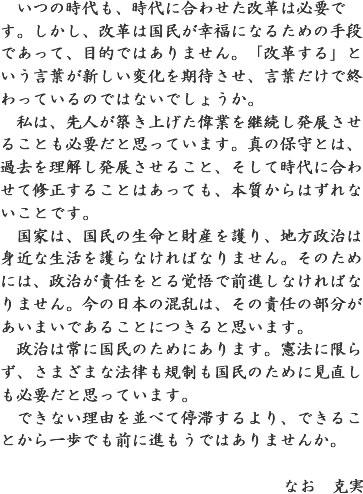 いつの時代も、時代に合わせた改革は必要で
す。しかし、改革は国民が幸福になるための手段
であって、目的ではありません。「改革する」と
いう言葉が新しい変化を期待させ、言葉だけで終
わっているのではないでしょうか。
　私は、先人が築き上げた偉業を継続し発展させ
ることも必要だと思っています。真の保守とは、
過去を理解し発展させること、そして時代に合わ
せて修正することはあっても、本質からはずれな
いことです。
　国家は、国民の生命と財産を護り、地方政治は
身近な生活を護らなければなりません。そのため
には、政治が責任をとる覚悟で前進しなければな
りません。今の日本の混乱は、その責任の部分が
あいまいであることにつきると思います。
　政治は常に国民のためにあります。憲法に限ら
ず、さまざまな法律も規制も国民のために見直し
も必要だと思っています。
　できない理由を並べて停滞するより、できるこ
とから一歩でも前に進もうではありませんか。
なお　克実